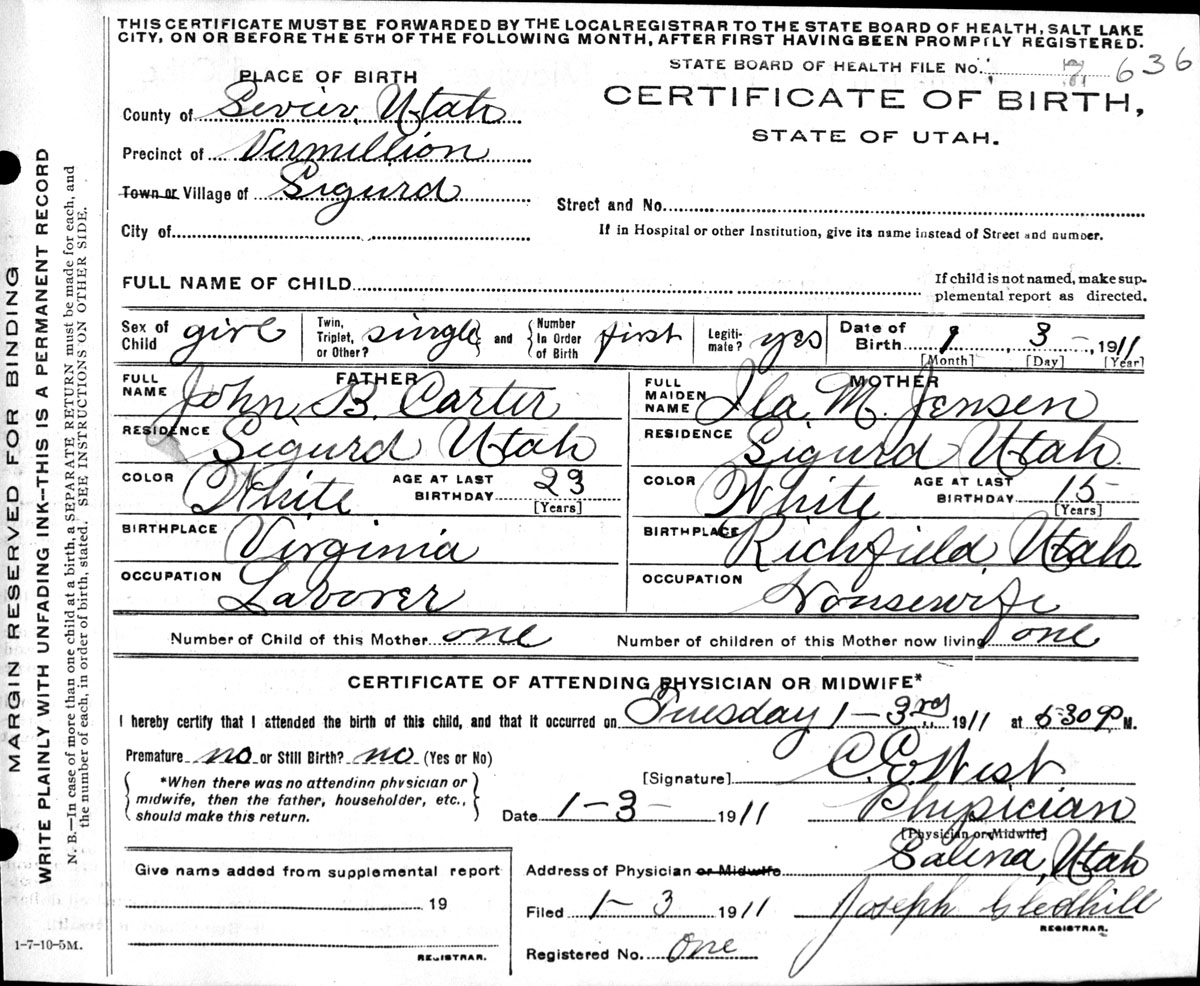 THIS CERTIFICATE MUST BE FORWARDED BY THE LOCAL REGISTRAR TO THE STATE BOARD OF HEALTH, SALT LAKE
CITY, ON OR BEFORE THE 5TH OF THE FOLLOWING MONTH, AFTER FIRST HAVING BEEN PROMPTLY REGISTERED.
STATE BOARD OF HEALTH FILE No. 636
PLACE OF BIRTH
CERTIFICATE OF BIRTH,
County of Sevier, Utah
STATE OF UTAH.
Precinct of Vermillion
Town or Village of Sigurd
Street and No.
City of
If in Hospital or other Institution, give its name instead of Street and number.
FULL NAME OF CHILD
If child is not named, make sup-
plemental report as directed.
Sex of Child girl Twin, Triplet, or Other? single and Number In Order of Birth first Legiti-mate? yes Date of Birth 1 3 1911
[Month] [Day] [Year]
FATHER MOTHER
FULL NAME John B. Carter FULL MAIDEN NAME Ila M. Jensen
RESIDENCE Sigurd Utah RESIDENCE Sigurd Utah
COLOR White AGE AT LAST BIRTHDAY 23 [Years] COLOR White AGE AT LAST BIRTHDAY 15 [Years]
BIRTHPLACE Virginia BIRTHPLACE Richfield, Utah
OCCUPATION Laborer OCCUPATION Housewife
Number of Child of this Mother one Number of children of this Mother now living one
CERTIFICATE OF ATTENDING PHYSICIAN OR MIDWIFE*
I hereby certify that I attended the birth of this child, and that it occurred on Tuesday 1-3rd, 1911 at 630 P M.
Premature no or Still Birth? no (Yes or No)
*When there was no attending physician or
midwife, then the father, householder, etc.,
should make this return.
[Signature] West
Date 1-3- 1911 Physician
[Physician or Midwife]
Address of Physician or Midwife Salina, Utah
Give name added from supplemental report
19
Filed 1-3 1911 Joseph Gledhill
REGISTRAR.
Registered No. one
REGISTRAR.
1-7-10-5M.
MARGIN RESERVED FOR BINDING
WRITE PLAINLY WITH UNFADING INK--THIS IS A PERMANENT RECORD
N. B.—In case of more than one child at a birth, a SEPARATE RETURN must be made for each, and
the number of each, in order of birth, stated. SEE INSTRUCTIONS ON OTHER SIDE.